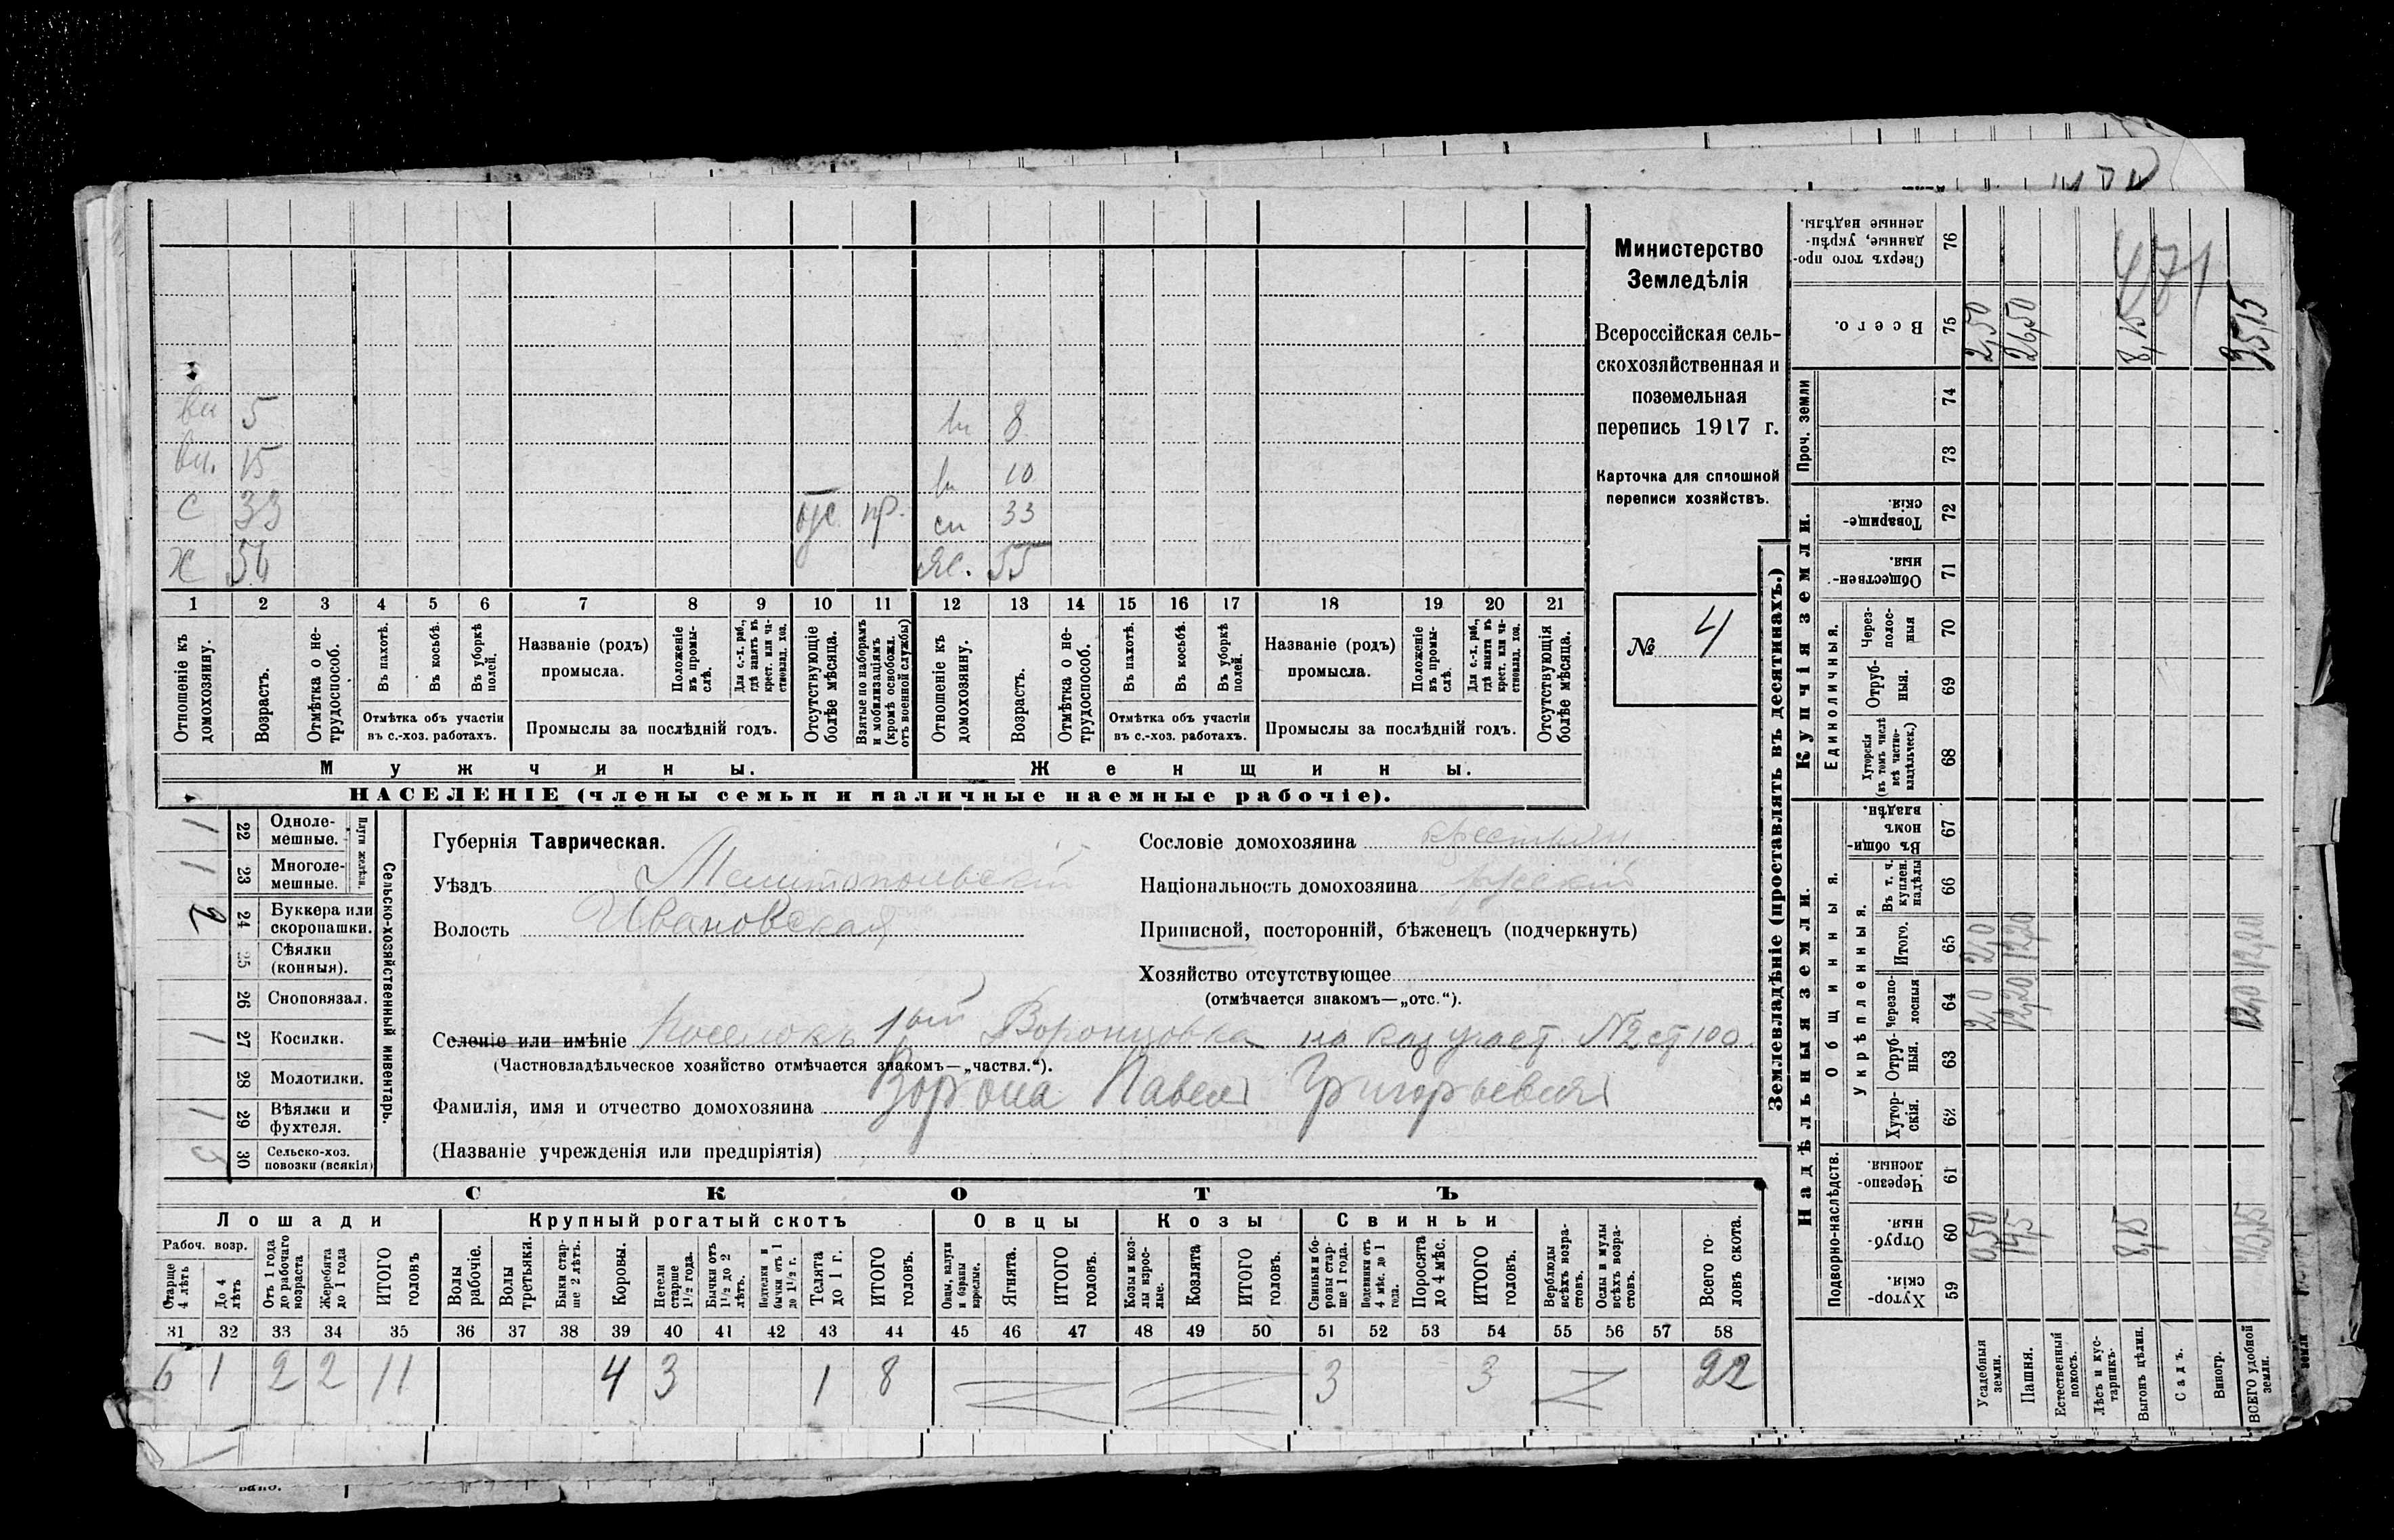 Министерство
Земледѣлія
Всероссійская сель-
скохозяйственная и
поземельная
перепись 1917 г.
Карточка для сплошной
переписи хозяйствъ.
№ 4
вн 5
вн. 15
с 33 отс пр.
х 56
вн 8
вн 10
сн 33
ж. 55
1 2 3 4 5 6 7 8 9 10 11 12 13 14 15 16 17 18 19 20 21
Отношеніе къ домохозяину.
Возрастъ.
Отмѣтка о не-трудоспособ.
Въ пахотѣ.
Въ косьбѣ.
Въ уборкѣ полей.
Отмѣтка объ участіи
въ с.-хоз. работахъ.
Названіе (родъ)
промысла.
Положеніе въ промы-слѣ.
Для с.-х. раб., гдѣ занятъ въ крест. или ча-стновлад. хоз.
Промыслы за послѣдній годъ.
Отсутствующіе болѣе мѣсяца.
Взятые по наборамъ и мобилизаціямъ (кромѣ освобожд. отъ военной службы)
Отношеніе къ домохозяину.
Возрастъ.
Отмѣтка о не-трудоспособ.
Въ пахотѣ.
Въ косьбѣ.
Въ уборкѣ полей.
Отмѣтка объ участіи
въ с.-хоз. работахъ.
Названіе (родъ)
промысла.
Положеніе въ промы-слѣ.
Для с.-х. раб., гдѣ занята въ крест. или ча-стновлад. хоз.
Промыслы за послѣдній годъ.
Отсутствующія болѣе мѣсяца.
Мужчины.
Женщины.
НАСЕЛЕНІЕ (члены семьи и наличные наемные рабочіе).
Сельско-хозяйственный инвентарь.
Плуги желѣзн.
1 22 Одноле-мешные.
1 23 Многоле-мешные.
2 24 Буккера или скоропашки.
25 Сѣялки (конныя).
26 Сноповязал.
1 27 Косилки.
28 Молотилки.
1 29 Вѣялки и фухтеля.
30 Сельско-хоз. повозки (всякія)
Губернія Таврическая.
Уѣздъ Мелитопольскій
Волость Ивановская
Сословіе домохозяина крестьян
Національность домохозяина русскій
Приписной, посторонній, бѣженецъ (подчеркнуть)
Хозяйство отсутствующее
(отмѣчается знакомъ—„отс.“).
Селеніе или имѣніе Поселокъ 1ый Воронцовка на каз участ №2 ст 100
(Частновладѣльческое хозяйство отмѣчается знакомъ—„частвл.“).
Фамилія, имя и отчество домохозяина Ворона Павел Григорьевич
(Названіе учрежденія или предпріятія)
СКОТЪ
Лошади
Крупный рогатый скотъ
Овцы
Козы
Свиньи
Рабоч. возр.
Старше 4 лѣтъ
До 4 лѣтъ
Отъ 1 года до рабочаго возраста
Жеребята до 1 года
ИТОГО головъ
Волы рабочіе.
Волы третьяки.
Быки стар-ше 2 лѣтъ.
Коровы.
Нетели старше 1½ года.
Бычки отъ 1½ до 2 лѣтъ.
Подтелки и бычки отъ 1 до 1½ г.
Телята до 1 г.
ИТОГО головъ.
Овцы, валухи и бараны взрослые.
Ягнята.
ИТОГО головъ.
Козы и коз-лы взрос-лые.
Козлята
ИТОГО головъ.
Свиньи и бо-ровы стар-ше 1 года.
Подсвинки отъ 4 мѣс. до 1 года.
Поросята до 4 мѣс.
ИТОГО головъ.
Верблюды всѣхъ возра-стовъ.
Ослы и мулы всѣхъ возра-стовъ.
Всего го-ловъ скота.
31 32 33 34 35 36 37 38 39 40 41 42 43 44 45 46 47 48 49 50 51 52 53 54 55 56 57 58
6 1 2 2 11 4 3 1 8 3 3 22
Землевладѣніе (проставлять въ десятинахъ.)
Надѣльныя земли.
Купчія земли.
Проч. земли
Подворно-наслѣдств.
Общинныя.
Укрѣпленныя.
Единоличныя.
Хутор-скія. 59
Отруб-ныя. 60
Черезпо-лосныя. 61
Хутор-скія. 62
Отруб-ныя. 63
Черезпо-лосныя 64
Итого. 65
Въ т. ч. куплен. надѣлы 66
Въ общи-номъ владѣн. 67
Хуторскія (въ томъ числѣ всѣ частно-владѣльческ.) 68
Отруб-ныя. 69
Через-полос-ныя 70
Обществен-ныя. 71
Товарище-скія. 72
73
74
Всего. 75
Сверхъ того про-данные, укрѣп-ленные надѣлы. 76
Усадебныя земли. 0,50 2,0 2,0 2,50
Пашня. 14,5 12,20 12,20 26,50
Естественный покосъ.
Лѣсъ и кус-тарникъ.
Выгонъ цѣлин. 8,15 8,15
Садъ.
Виногр.
ВСЕГО удобной земли. 12,20
471